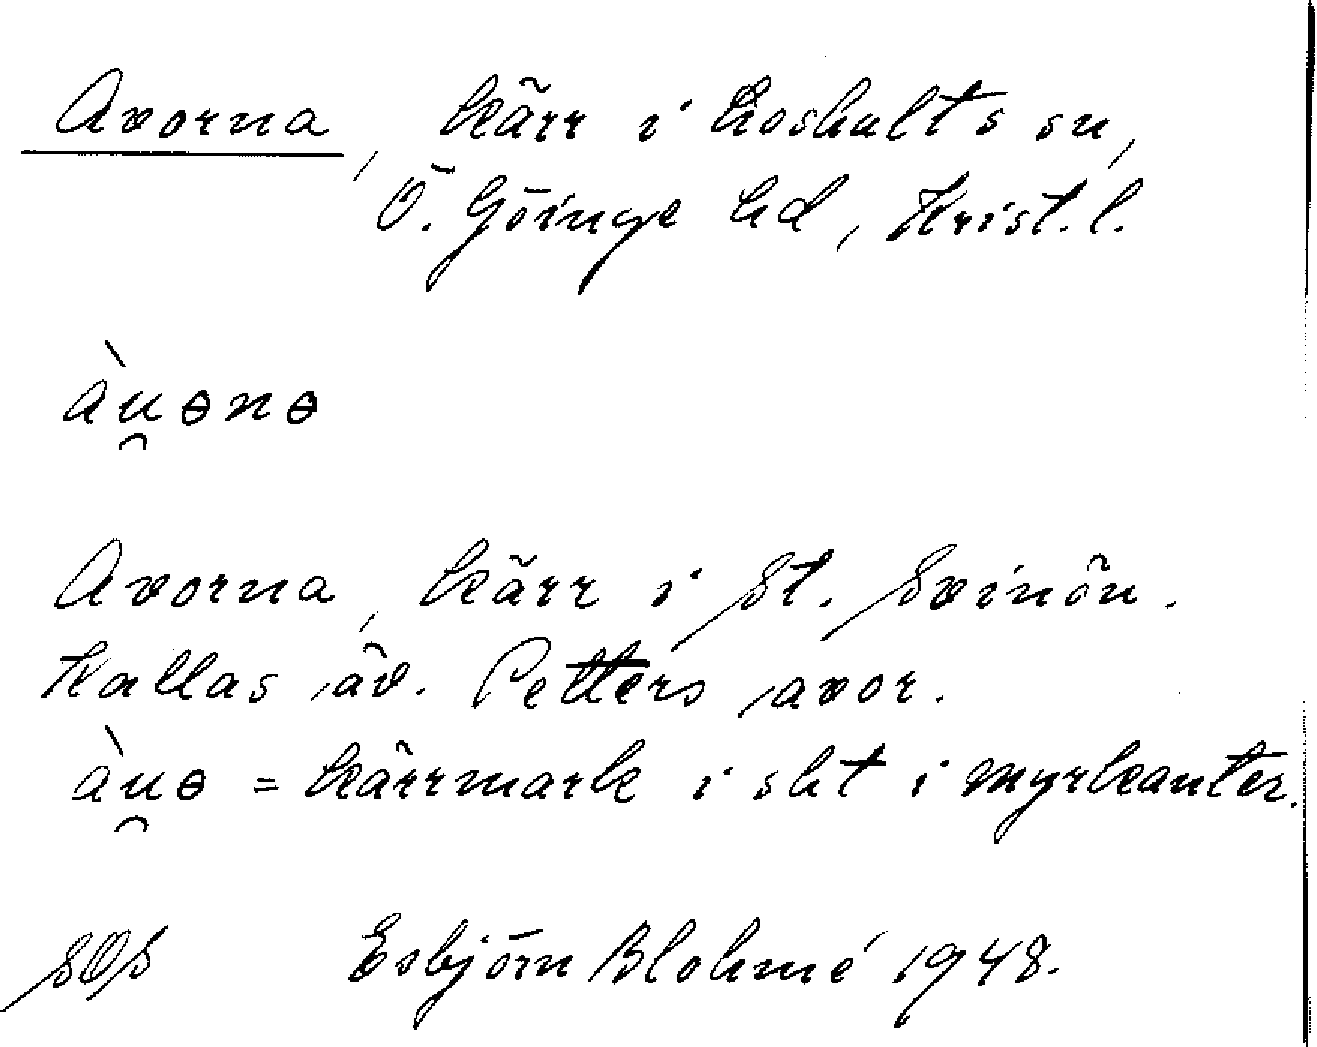 Avorna, kärr i Loshults sn,
Ö. Göinge hd, Krist. l.
àu̯ɵnɵ
Avorna, kärr i St. Svinön.
Kallas äv. Petters avor.
àu̯ɵ = kärrmark i sht i myrkanter.
SOS Esbjörn Blohmé 1948.